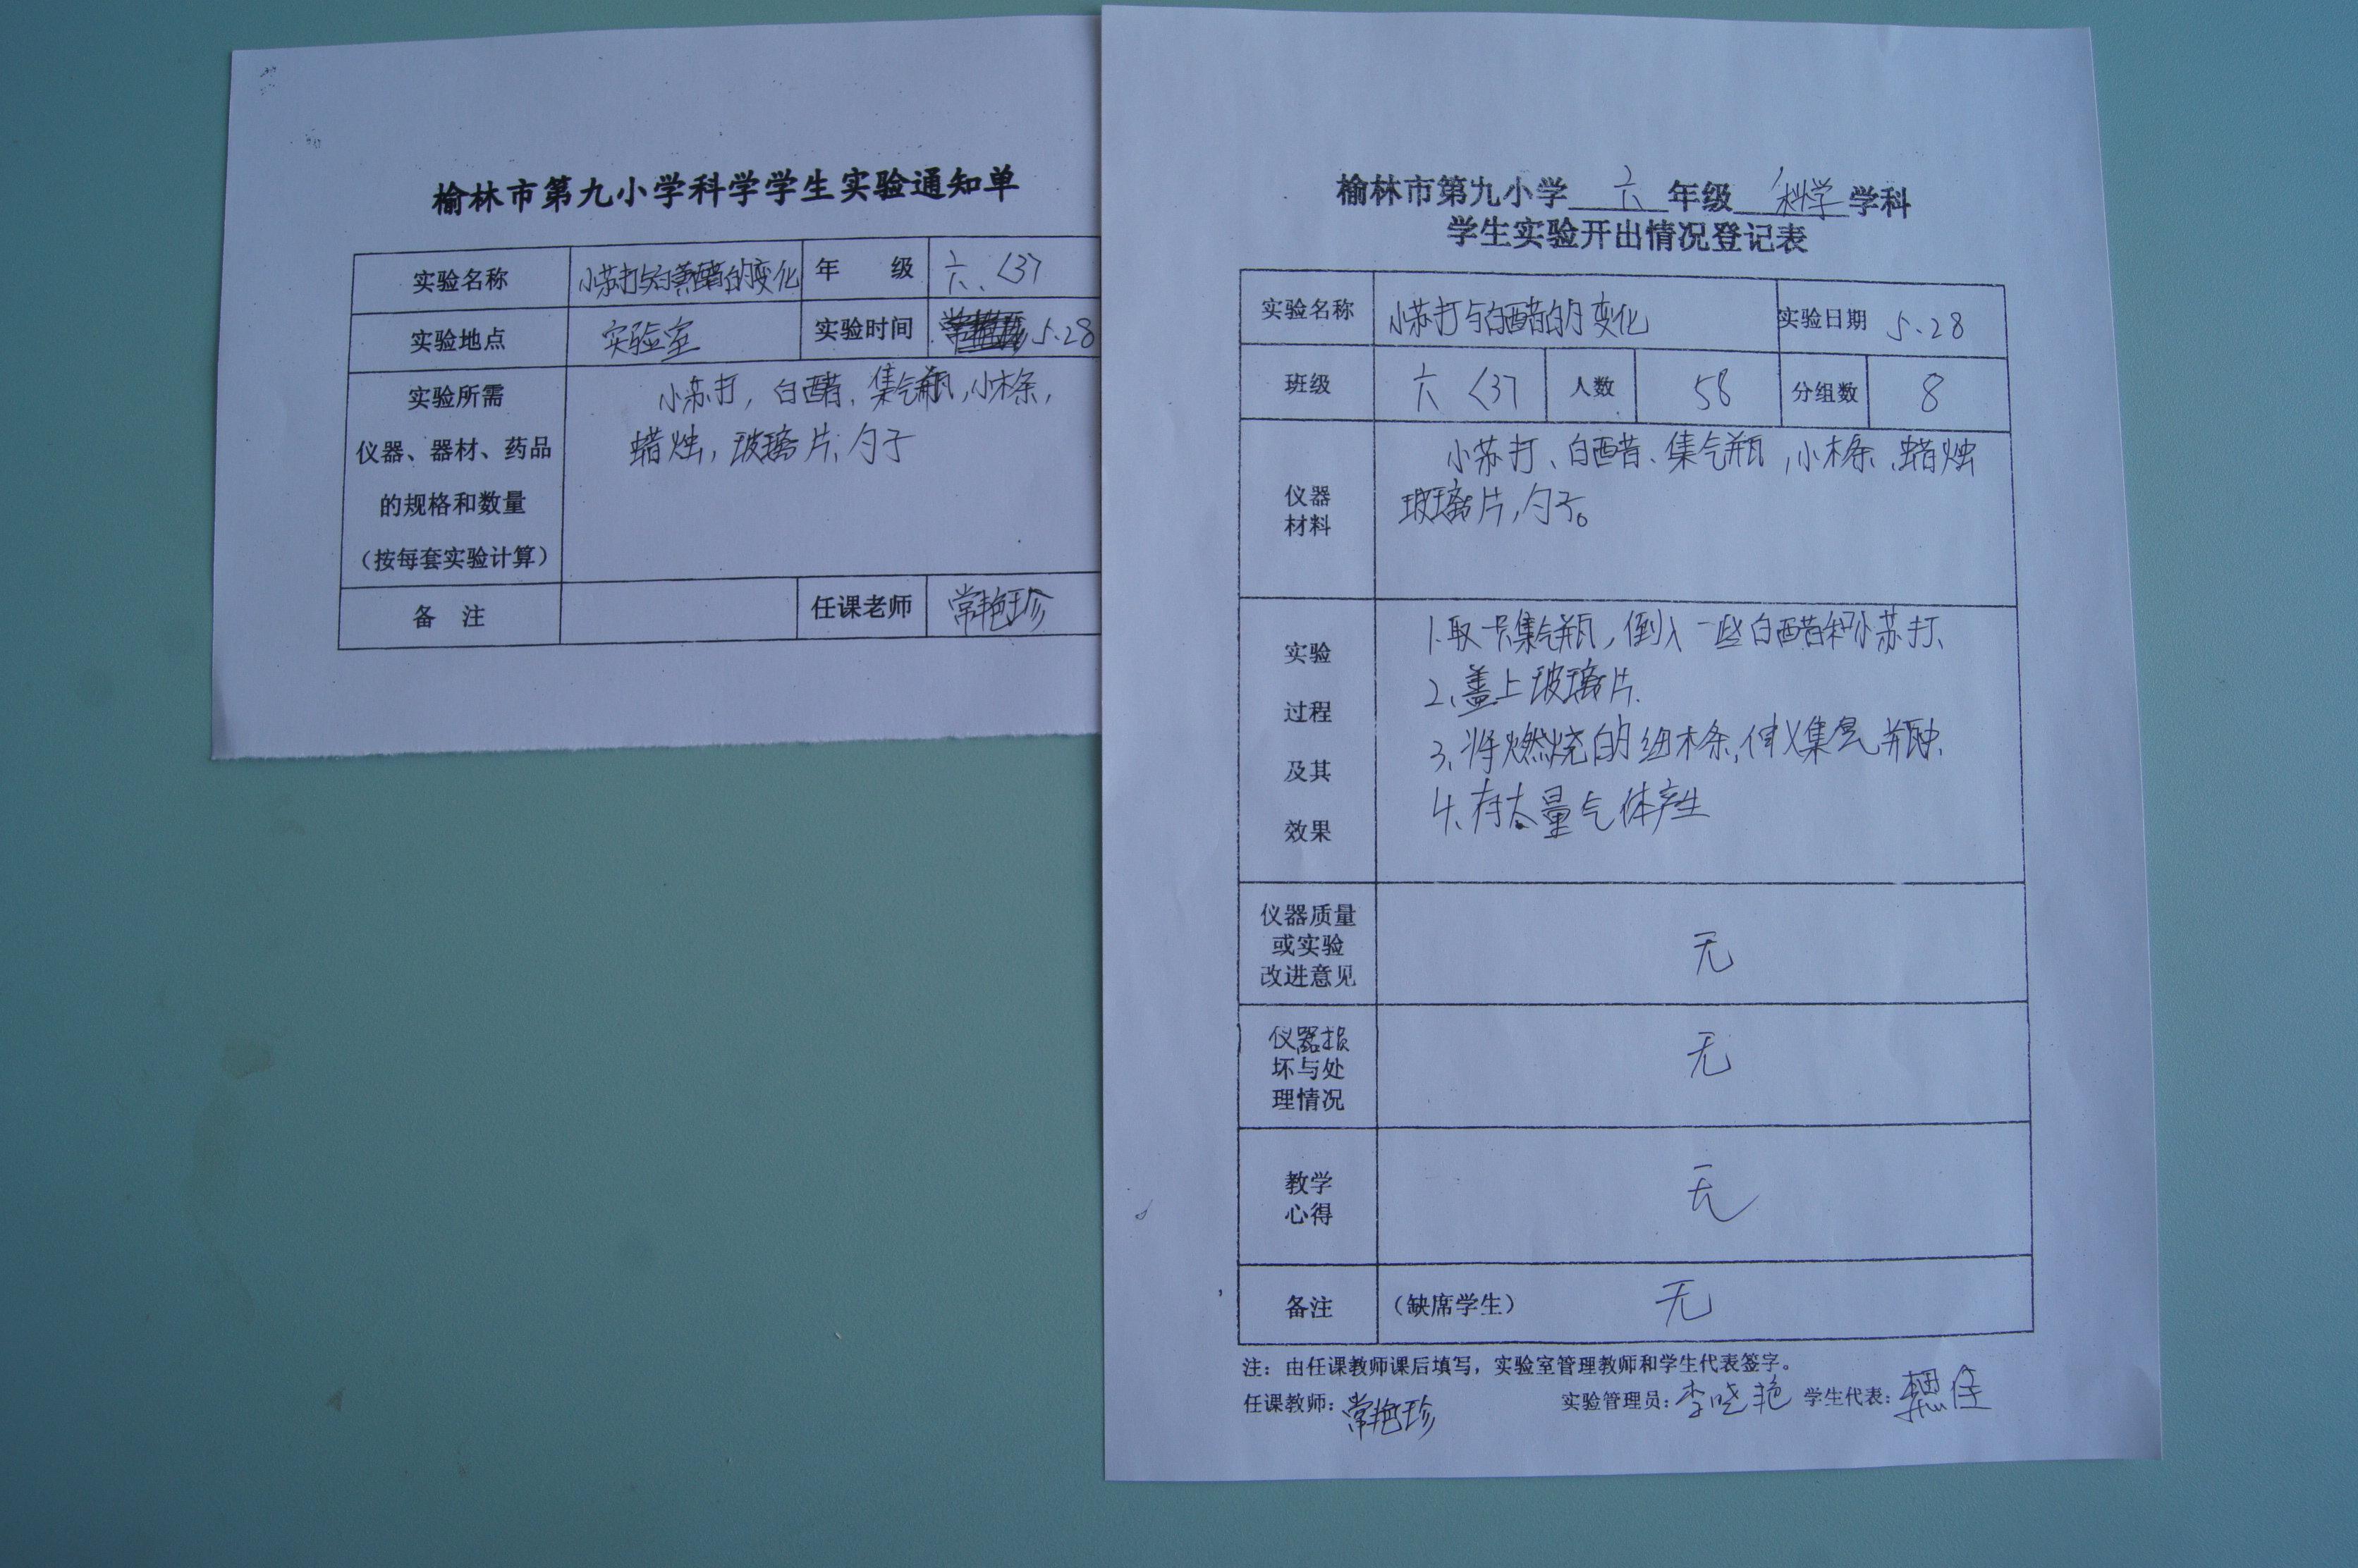 榆林市第九小学科学学生实验通知单
实验名称 小苏打与白醋的变化 年 级 六、<37
实验地点 实验室 实验时间 5.28
实验所需
仪器、器材、药品
的规格和数量
(按每套实验计算)
小苏打, 白醋、集气瓶, 小木条,
蜡烛, 玻璃片、勺子
备 注 任课老师 常艳珍
榆林市第九小学 六 年级 科学 学科
学生实验开出情况登记表
实验名称 小苏打与白醋的变化 实验日期 5.28
班级 六 <37 人数 58 分组数 8
仪器
材料
小苏打、白醋、集气瓶, 小木条、蜡烛
玻璃片, 勺子。
实验
过程
及其
效果
1.取一只集气瓶, 倒入一些白醋和小苏打、
2、盖上玻璃片.
3、将燃烧的细木条, 伸入集气瓶中、
4、有大量气体产生
仪器质量
或实验
改进意见
无
仪器损
坏与处
理情况
无
教学
心得
无
备注 (缺席学生) 无
注: 由任课教师课后填写, 实验室管理教师和学生代表签字。
任课教师: 常艳珍 实验管理员: 李晓艳 学生代表: